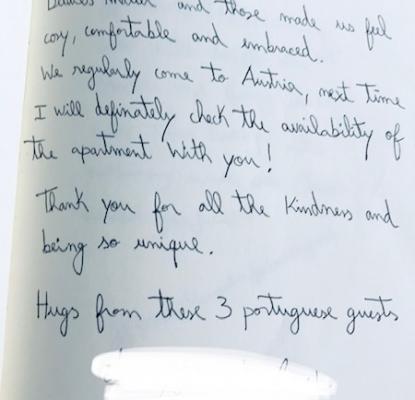 and those made us feel
cosy, comfortable and embraced.
We regularly come to Austria, next time
I will definately check the availability of
the apartment with you!
Thank you for all the kindness and
being so unique.
Hugs from these 3 portuguese guests